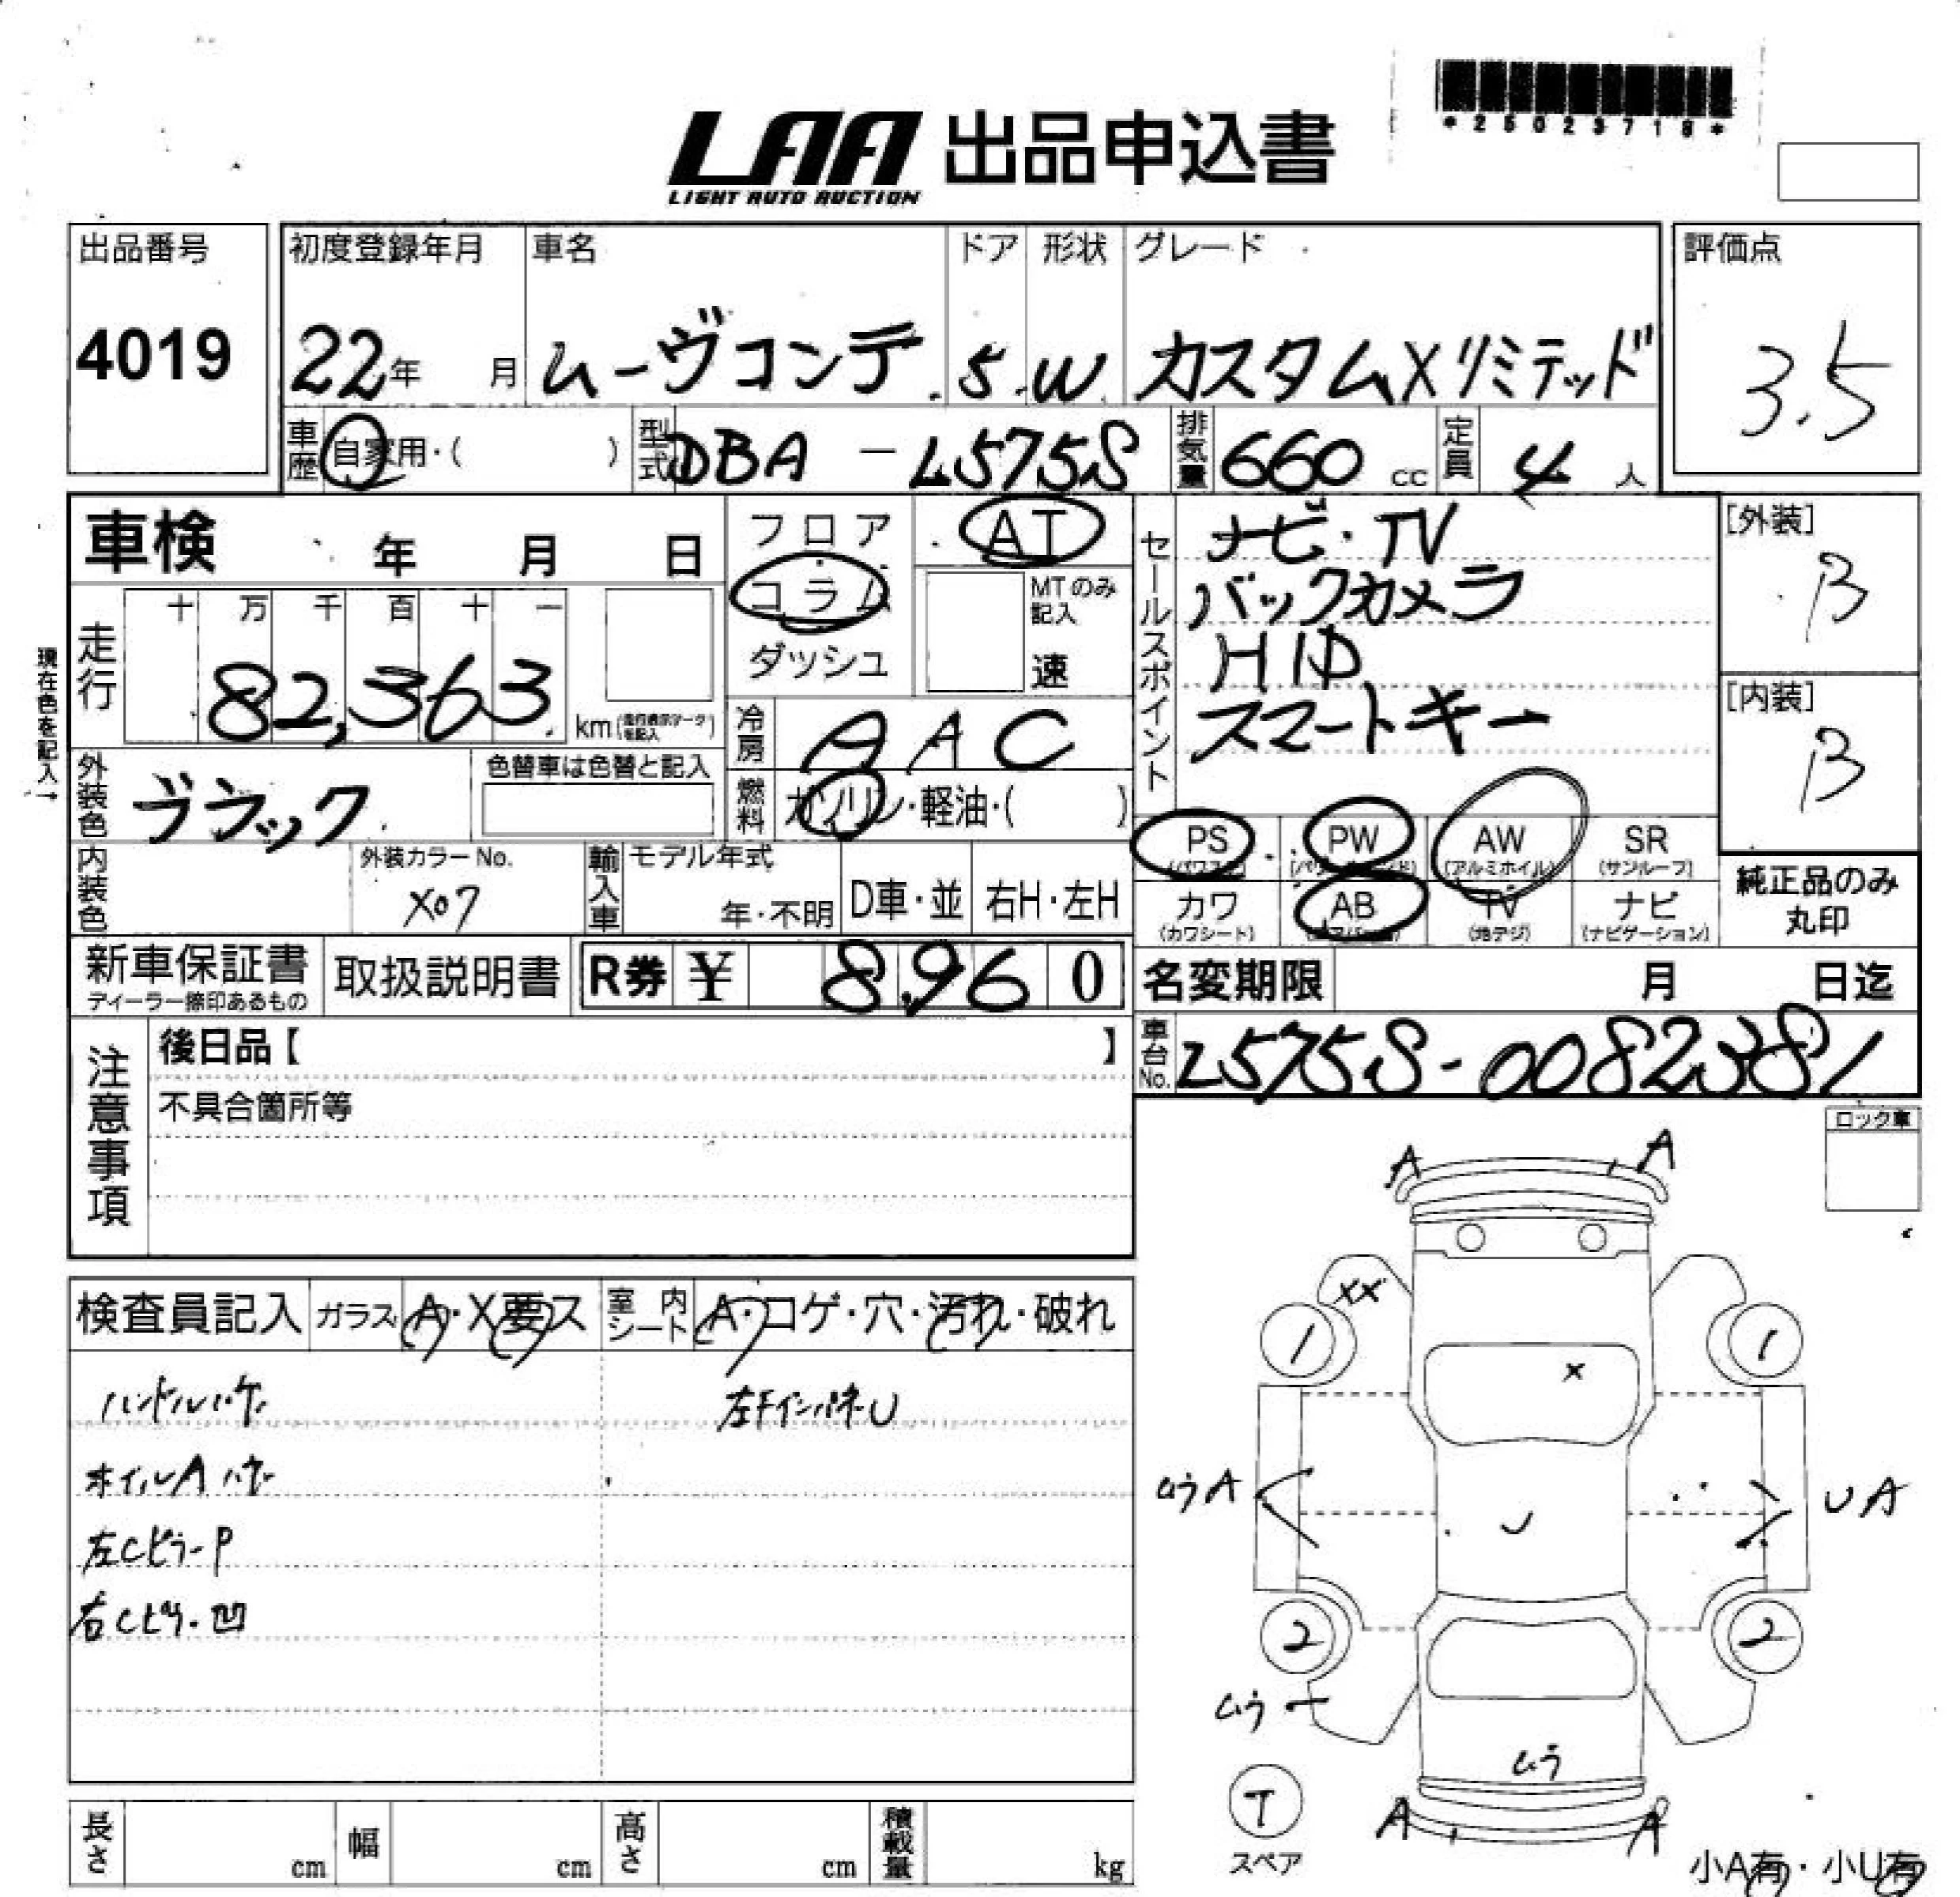 *25023718*
LAA 出品申込書
LIGHT AUTO AUCTION
出品番号 初度登録年月 車名 ドア 形状 グレード 評価点
4019 22年 月 ムーヴコンテ 5 W カスタムXリミテッド 3.5
車歴 自家用・( ) 型式 DBA - L575S 排気量 660 cc 定員 4 人
車検 年 月 日 フロア AT
コラム MTのみ記入
ダッシュ 速
走行 十 万 千 百 十 一
82,363 km
現在色を記入→
冷房 AAC
外装色 ブラック 色替車は色替と記入 燃料 ガソリン・軽油・( )
内装色 外装カラーNo. X07 輸入車 モデル年式 年・不明 D車・並 右H・左H
セールスポイント ナビ・TV
バックカメラ
HID
スマートキー
[外装] B
[内装] B
PS PW AW SR
(パワステ) (アルミホイル) (サンルーフ)
カワ AB TV ナビ
(カワシート) (エアバッグ) (地デジ) (ナビゲーション)
純正品のみ
丸印
新車保証書 取扱説明書 R券 ¥ 8,960 名変期限 月 日迄
ディーラー捺印あるもの
車台No. L575S-0082381
注意事項 後日品【 】
不具合箇所等
ロック車
検査員記入 ガラス A・X要ス 室内シート A・コゲ・穴・汚れ・破れ
ハンドルハゲ 左FインパネU
ホイルAハゲ
左CピラーP
右Cピラー凹
A A
XX
1 1
X
ムラA U UA
2 2
ムラ
ムラ
T
スペア
A A
小A有・小U有
長さ cm 幅 cm 高さ cm 積載量 kg